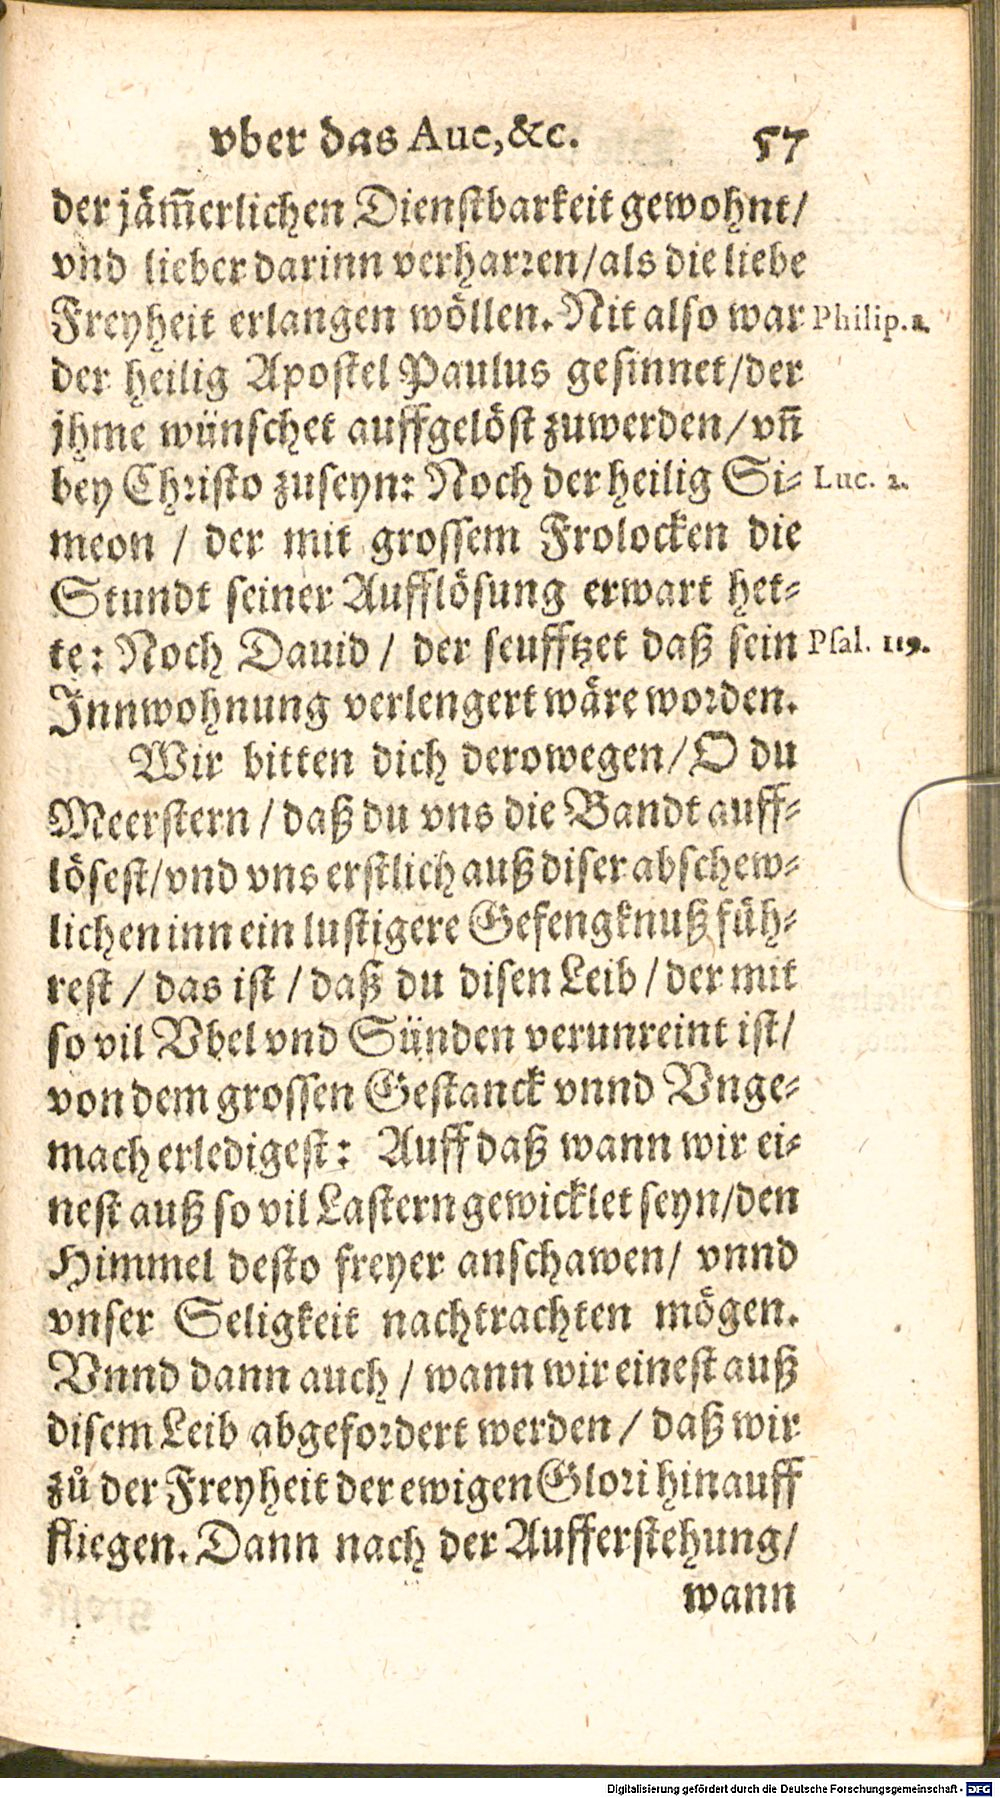 vber das Aue, &c. 57
der jäm̃erlichen Dienstbarkeit gewohnt/
vnd lieber darinn verharren/als die liebe
Freyheit erlangen wöllen. Nit also war Philip. 1.
der heilig Apostel Paulus gesinnet/der
jhme wünschet auffgelöst zuwerden/vñ
bey Christo zuseyn: Noch der heilig Si- Luc. 2.
meon / der mit grossem Frolocken die
Stundt seiner Aufflösung erwart het-
te: Noch Dauid / der seufftzet daß sein Psal. 119.
Innwohnung verlengert wäre worden.
Wir bitten dich derowegen/ O du
Meerstern / daß du vns die Bandt auff-
lösest/vnd vns erstlich auß diser abschew-
lichen inn ein lustigere Gefengknuß füh-
rest / das ist / daß du disen Leib / der mit
so vil Vbel vnd Sünden verunreint ist/
von dem grossen Gestanck vnnd Vnge-
mach erledigest: Auff daß wann wir ei-
nest auß so vil Lastern gewicklet seyn/den
Himmel desto freyer anschawen/ vnnd
vnser Seligkeit nachtrachten mögen.
Vnnd dann auch / wann wir einest auß
disem Leib abgefordert werden / daß wir
zů der Freyheit der ewigen Glori hinauff
fliegen. Dann nach der Aufferstehung/
wann
Digitalisierung gefördert durch die Deutsche Forschungsgemeinschaft - DFG